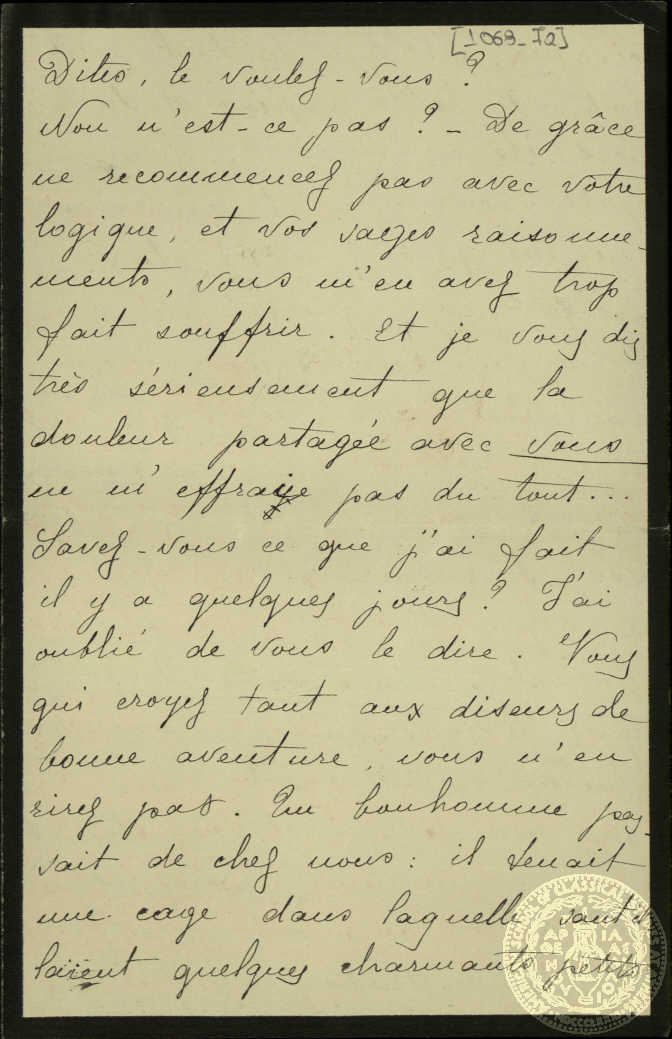 [1068-72]
Dites, le voulez-vous ?
Non n'est-ce pas ? - De grâce
ne recommencez pas avec votre
logique, et vos sages raisonne-
ments, vous m'en avez trop
fait souffrir. Et je vous dis
très sérieusement que la
douleur partagée avec vous
ne m'effraye pas du tout...
Savez-vous ce que j'ai fait
il y a quelques jours ? J'ai
oublié de vous le dire. Vous
qui croyez tant aux diseurs de
bonne aventure, vous n'en
rirez pas. Un bonhomme pas-
sait de chez nous : il tenait
une cage dans laquelle sauti-
laient quelques charmants petits